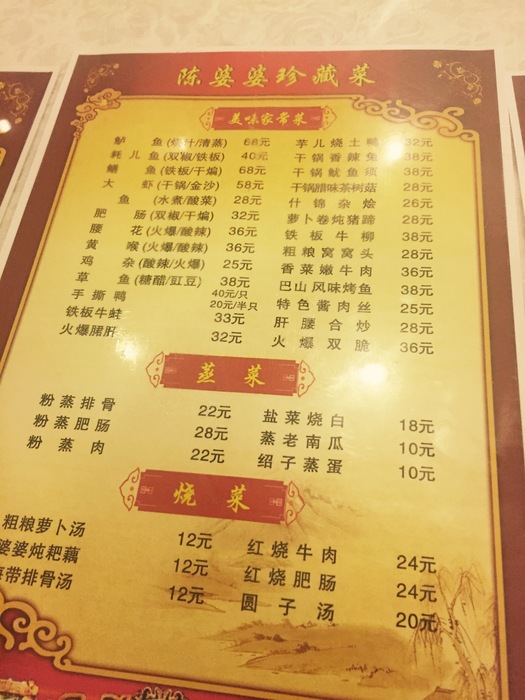 陈婆婆珍藏菜
美味家常菜
鲈鱼(烧汁/清蒸) 68元
耗儿鱼(双椒/铁板) 40元
鳝鱼(铁板/干煸) 68元
大虾(干锅/金沙) 58元
鱼(水煮/酸菜) 28元
肥肠(双椒/干煸) 32元
腰花(火爆/酸辣) 36元
黄喉(火爆/酸辣) 36元
鸡杂(酸辣/火爆) 25元
草鱼(糖醋/豇豆) 38元
手撕鸭 40元/只
20元/半只
铁板牛蛙 33元
火爆䐁肝 32元
芋儿烧土鸭 32元
干锅香辣兔 38元
干锅鱿鱼须 38元
干锅腊味茶树菇 28元
什锦杂烩 26元
萝卜卷炖猪蹄 28元
铁板牛柳 38元
粗粮窝窝头 28元
香菜嫩牛肉 36元
巴山风味烤鱼 38元
特色酱肉丝 25元
肝腰合炒 28元
火爆双脆 36元
蒸菜
粉蒸排骨 22元
粉蒸肥肠 28元
粉蒸肉 22元
盐菜烧白 18元
蒸老南瓜 10元
绍子蒸蛋 10元
烧菜
粗粮萝卜汤 12元
婆婆炖粑藕 12元
带排骨汤 12元
红烧牛肉 24元
红烧肥肠 24元
圆子汤 20元